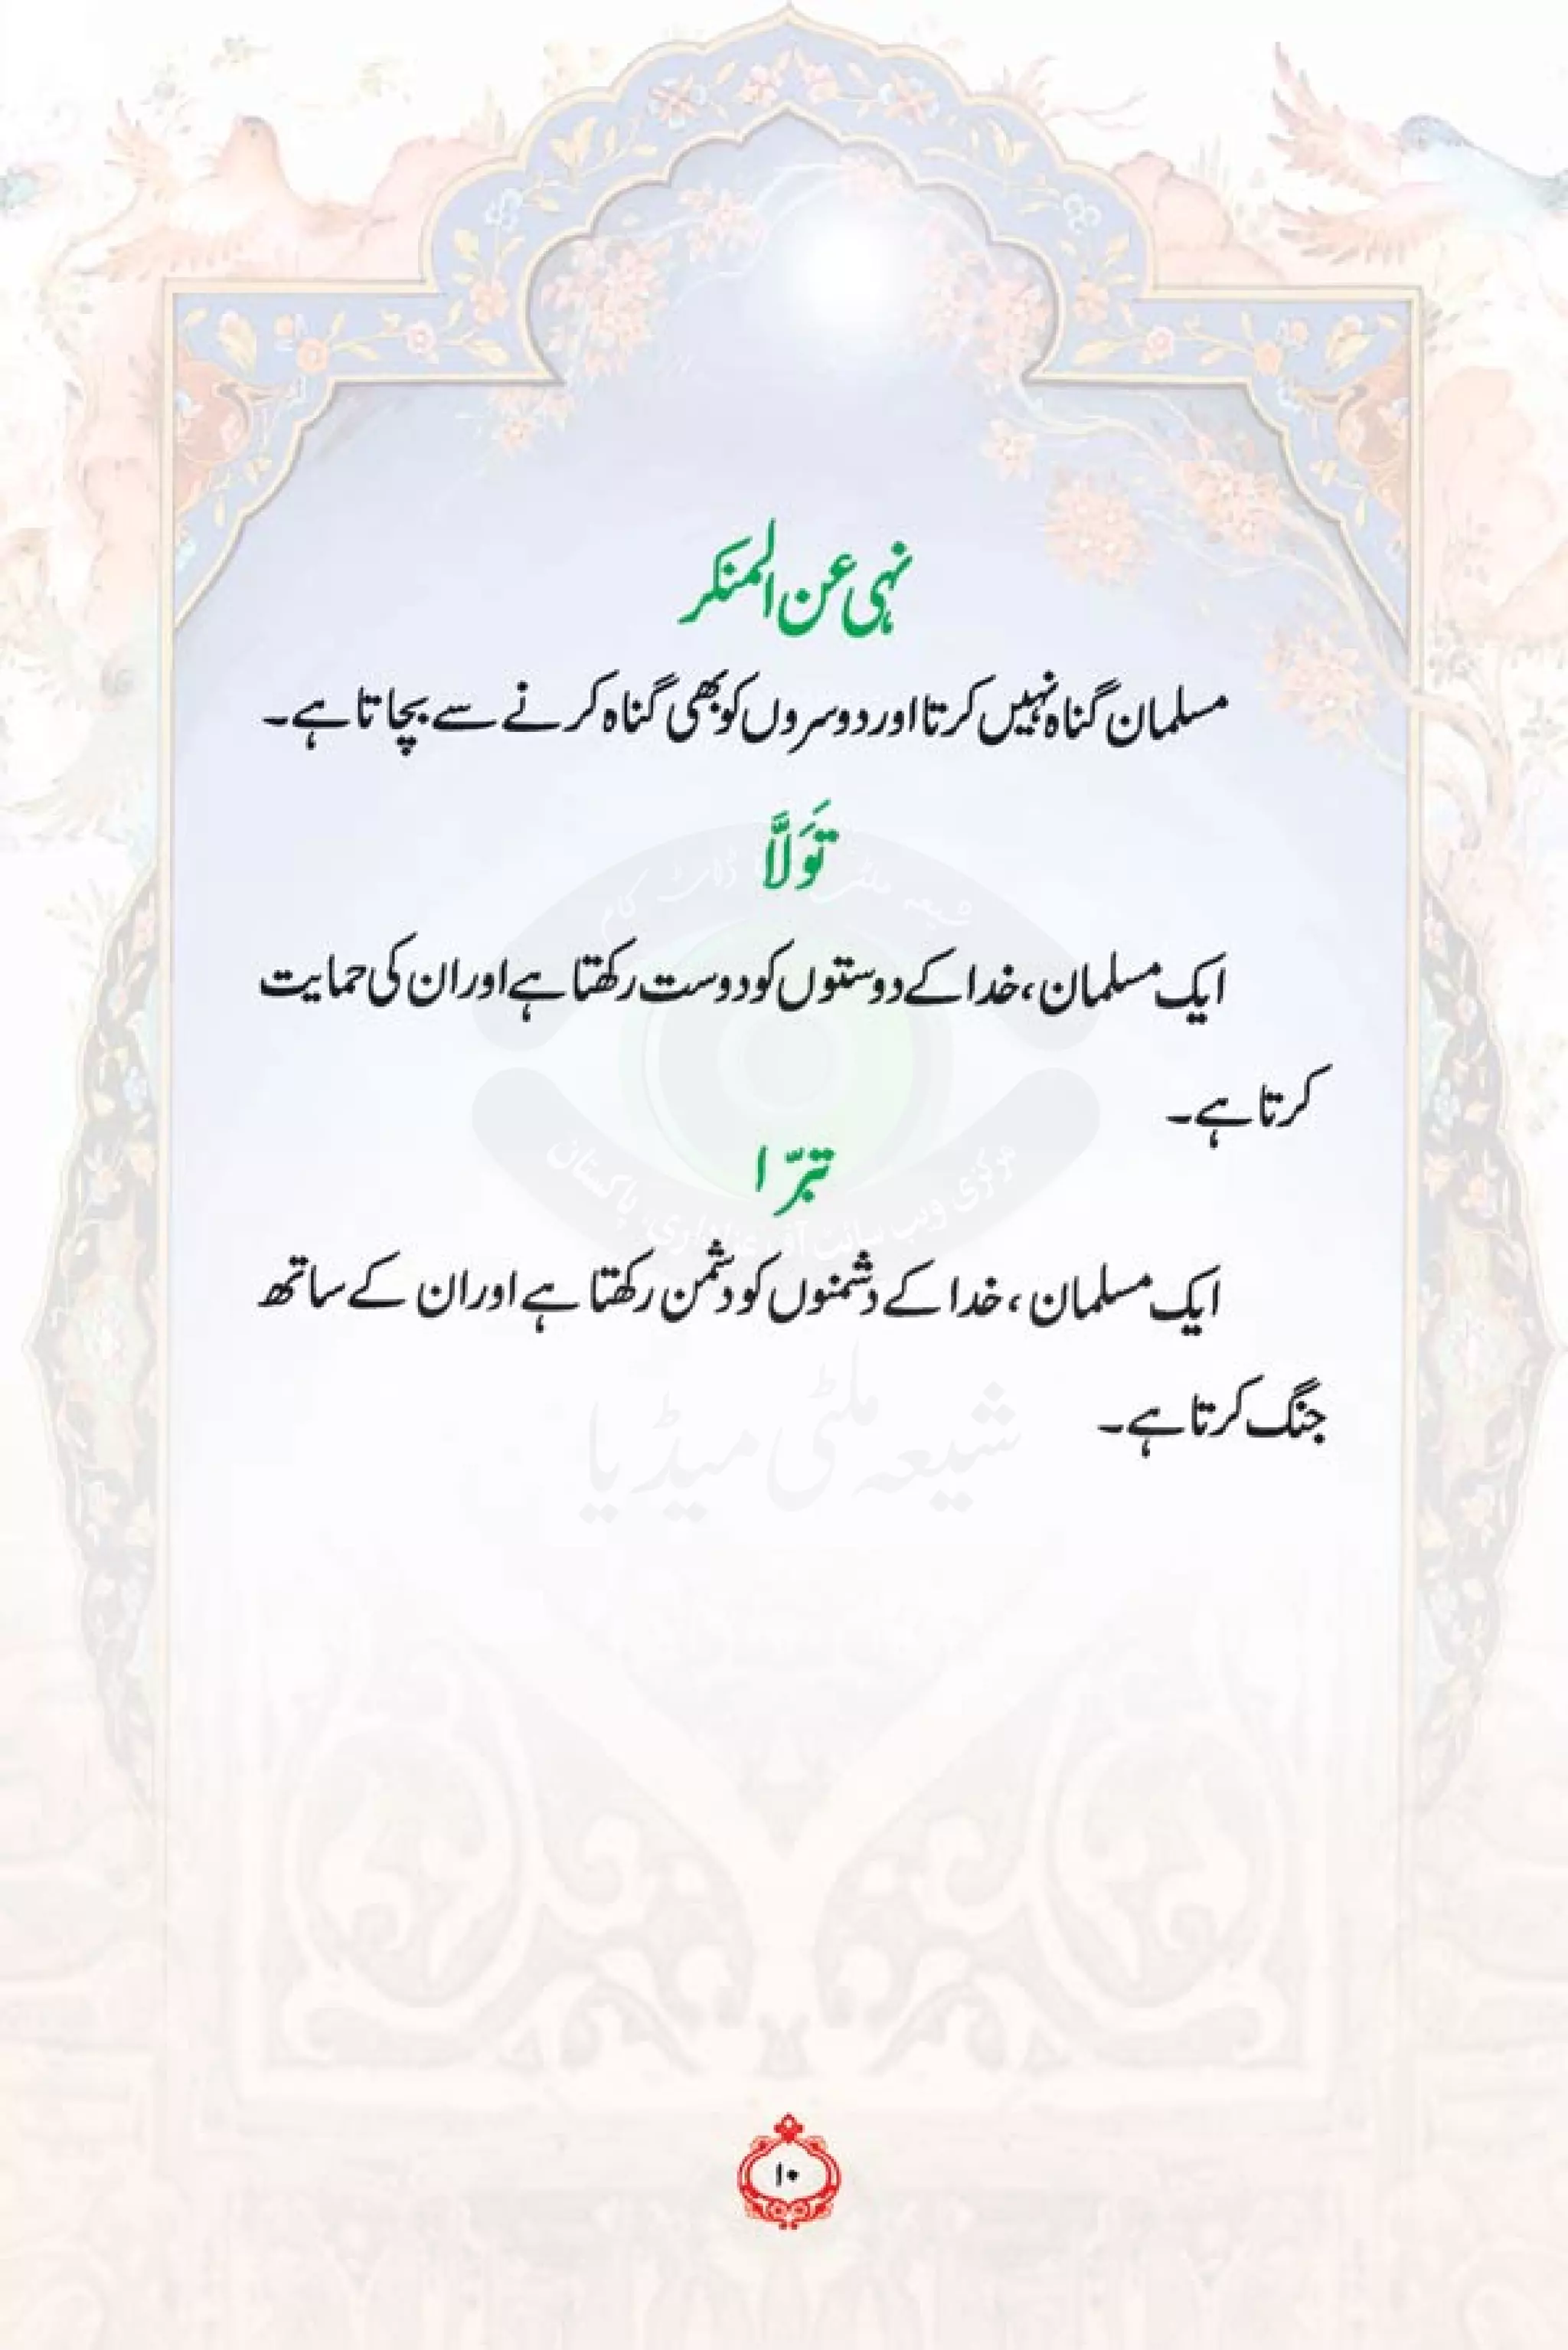 نہی عن المنکر
مسلمان گناہ نہیں کرتا اور دوسروں کو بھی گناہ کرنے سے بچاتا ہے۔
تَوَلَّا
ایک مسلمان، خدا کے دوستوں کو دوست رکھتا ہے اور ان کی حمایت
کرتا ہے۔
تبرّا
مرکزی ویب سائٹ آف عزاداری، پاکستان
ایک مسلمان، خدا کے دشمنوں کو دشمن رکھتا ہے اور ان کے ساتھ
جنگ کرتا ہے۔
شیعہ ملٹی میڈیا
۱۰